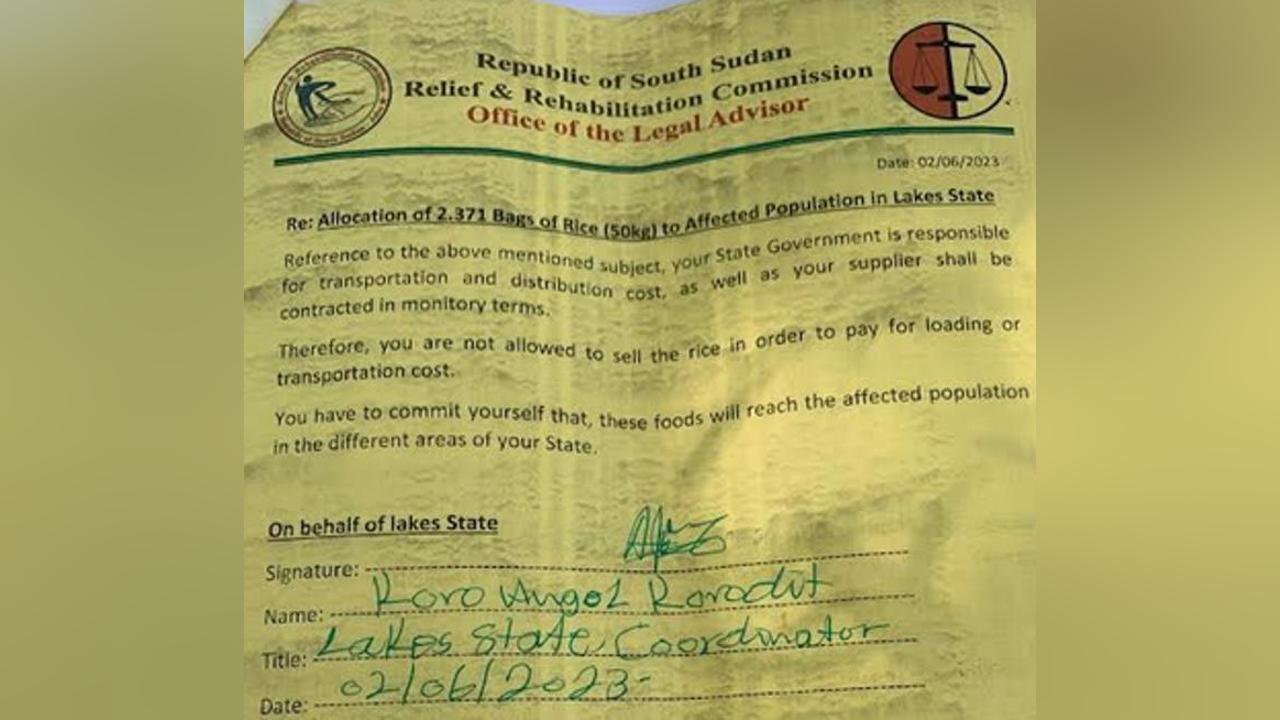 Republic of South Sudan
Relief & Rehabilitation Commission
Office of the Legal Advisor
Date: 02/06/2023
Re: Allocation of 2.371 Bags of Rice (50kg) to Affected Population in Lakes State
Reference to the above mentioned subject, your State Government is responsible
for transportation and distribution cost, as well as your supplier shall be
contracted in monitory terms.
Therefore, you are not allowed to sell the rice in order to pay for loading or
transportation cost.
You have to commit yourself that, these foods will reach the affected population
in the different areas of your State.
On behalf of lakes State
Signature:
Name: Koro Angol Korodit
Title: Lakes State Coordinator
Date: 02/06/2023-